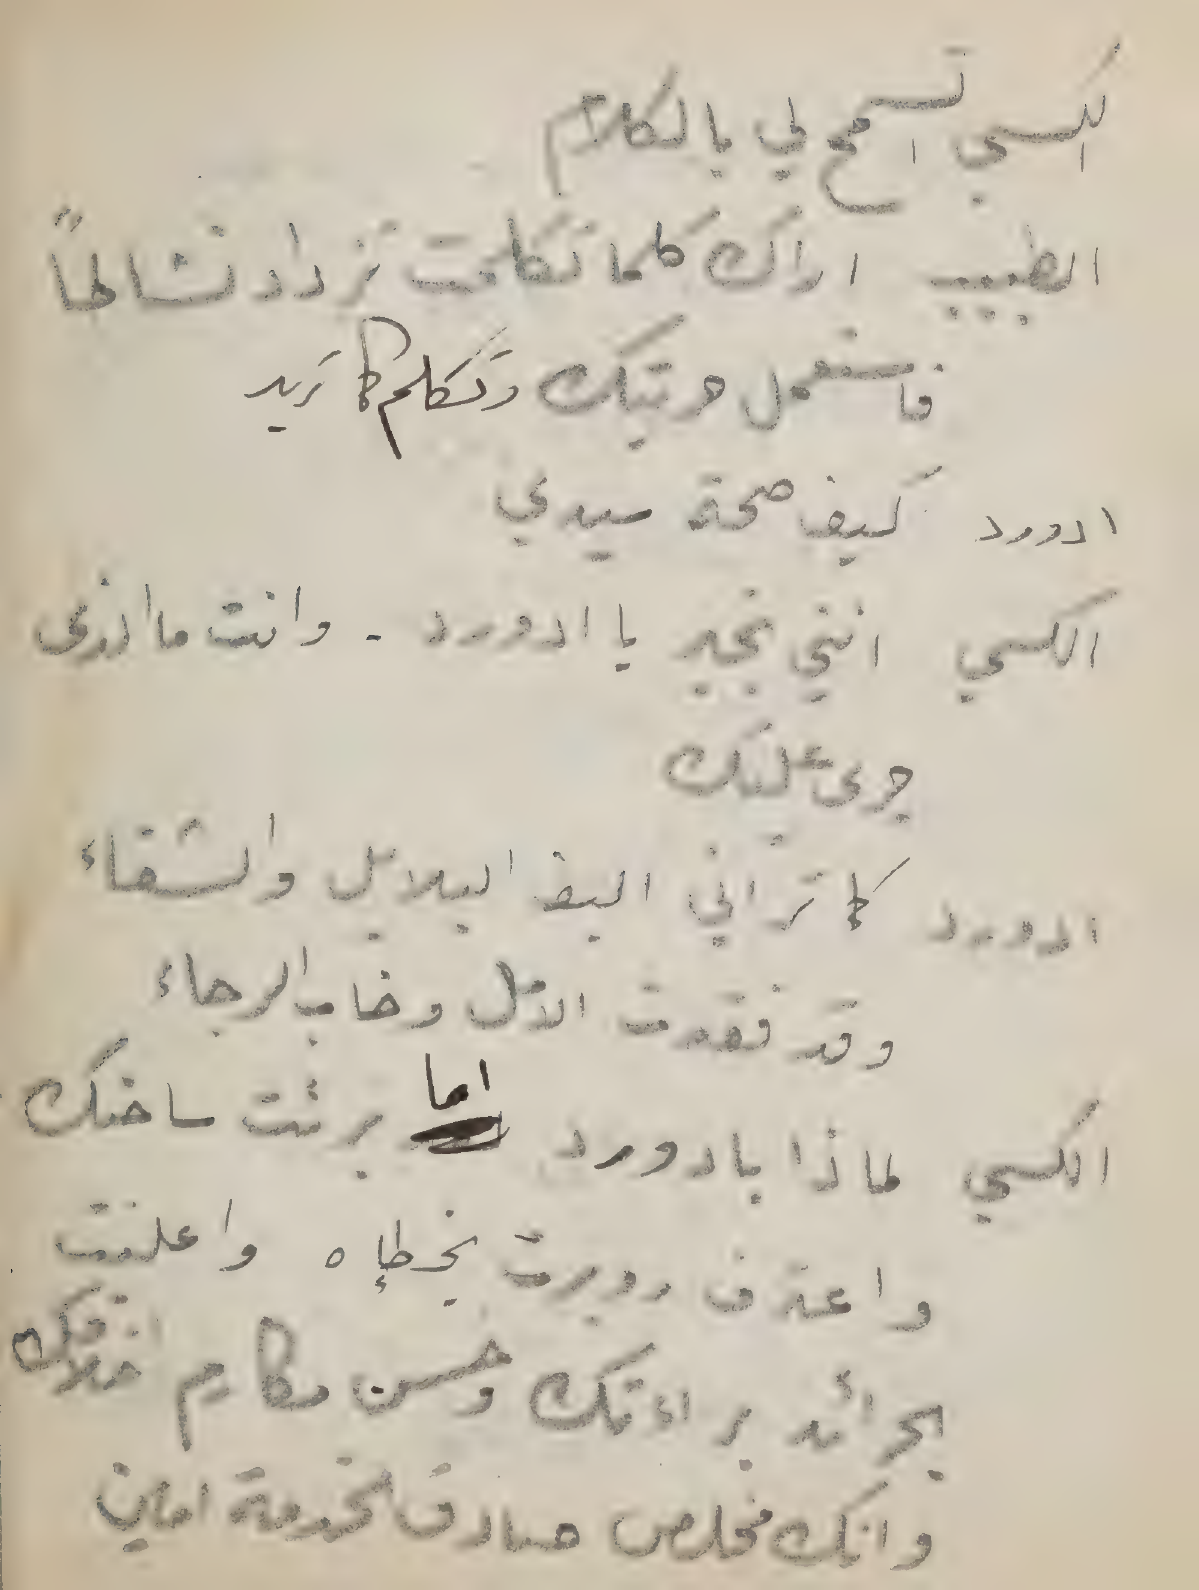 الكسي اتسمح لي بالكلام
الطبيب اراك كلما تكلمت تزداد نشاطاً
فاستعمل حريتك وتكلم كما تريد
ادورد كيف صحة سيدي
الكسي انني بخير يا ادورد - وانت ما الذي
جرى عليك
ادورد كما تراني اليف البلابل والشقاء
وقد فقدت الامل وخاب الرجاء
الكسي لماذا يادورد اما برئت ساحتك
واعترف روبرت بخطإه واعلنت
الجرائد براءتك وحسن مكارم اخلاقك
وانك مخلص صادق الخدمة امين